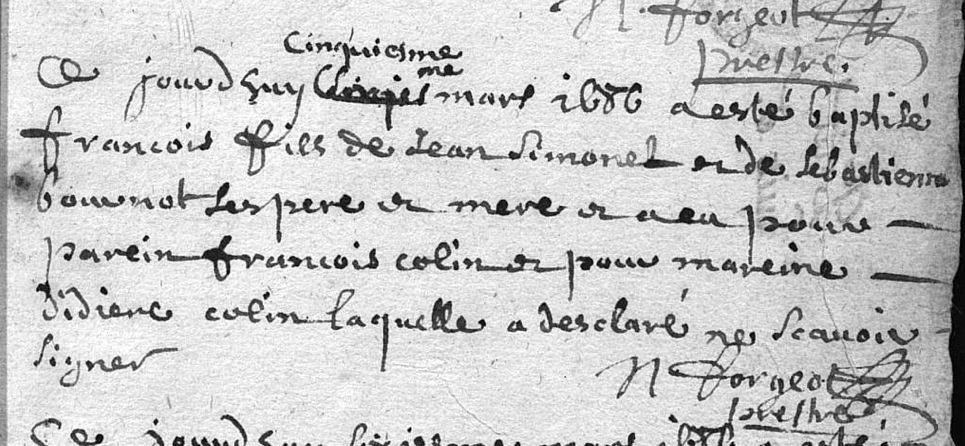 N. Forgeot
prestre.
Cinquiesme
Ce jourdhuy mars 1686 a esté baptisé
francois ffils de Jean Simonel et de sebastienne
bournot ses pere et mere et a eu pour
parein francois colin et pour mareine
didiere colin laquelle a desclaré ne scavoir
signer
N Forgeot
prestre
Ce jourdhuy mars